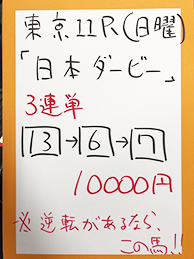 東京11R(日曜)
「日本ダービー」
3連単
13→6→7
10000円
※逆転があるなら、
この馬!!